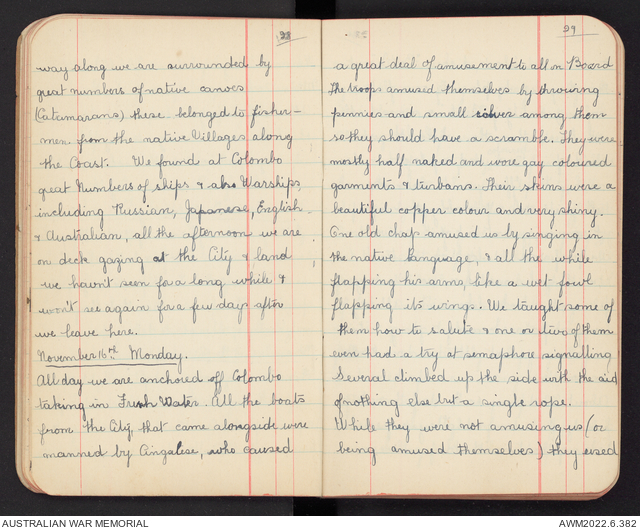 28
way along we are surrounded by
great numbers of native canoes
(Catamarans) these belonged to fisher-
men from the native Villages along
the Coast. We found at Colombo
great Numbers of ships & also Warships
including Russian, Japanese, English
& Australian, all the afternoon we are
on deck gazing at the City & land
we havn't seen for a long while &
won't see again for a few days after
we leave here.
November 16th Monday.
All day we are anchored off Colombo
taking in Fresh Water. All the boats
from the City that came alongside were
manned by Cingalese, who caused
29
a great deal of amusement to all on Board
The troops amused themselves by throwing
pennies and small silver among them
so they should have a scramble. They were
mostly half naked and wore gay coloured
garments & turbans. Their skins were a
beautiful copper colour and very shiny.
One old chap amused us by singing in
the native language, & all the while
flapping his arms like a wet fowl
flapping its wings. We taught some of
them how to salute & one or two of them
even had a try at semaphore signalling
Several climbed up the side with the aid
of nothing else but a single rope.
While they were not amusing us (or
being amused themselves) they used
AUSTRALIAN WAR MEMORIAL
AWM2022.6.382